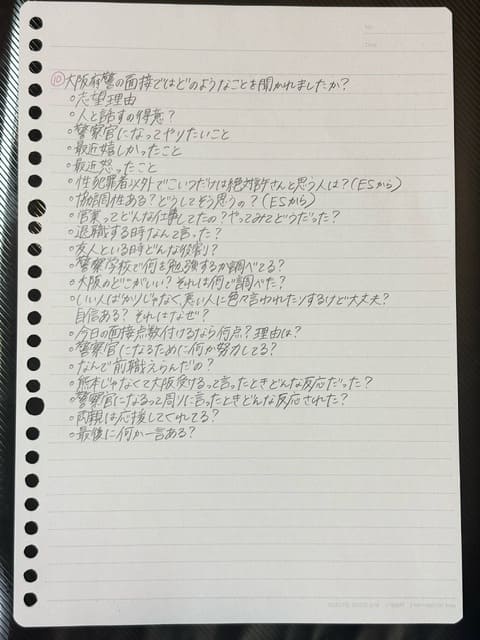 ⑩大阪府警の面接ではどのようなことを聞かれましたか？
○志望理由
○人と話すの得意？
○警察官になってやりたいこと
○最近嬉しかったこと
○最近怒ったこと
○性犯罪者以外でこいつだけは絶対許さんと思う人は？(ESから)
○協調性ある？どうしてそう思うの？(ESから)
○営業ってどんな仕事してたの？やってみてどうだった？
○退職する時なんて言った？
○友人といる時どんな役割？
○警察学校で何を勉強するか調べてる？
○大阪のどこがいい？それは何で調べた？
○いい人ばかりじゃなく、悪い人に色々言われたりするけど大丈夫？
自信ある？それはなぜ？
○今日の面接点数付けるなら何点？理由は？
○警察官になるために何か努力してる？
○なんで前職えらんだの？
○熊本じゃなくて大阪受けるって言ったときどんな反応だった？
○警察官になるって周りに言ったときどんな反応された？
○両親は応援してくれてる？
○最後に何か一言ある？
No.
Date